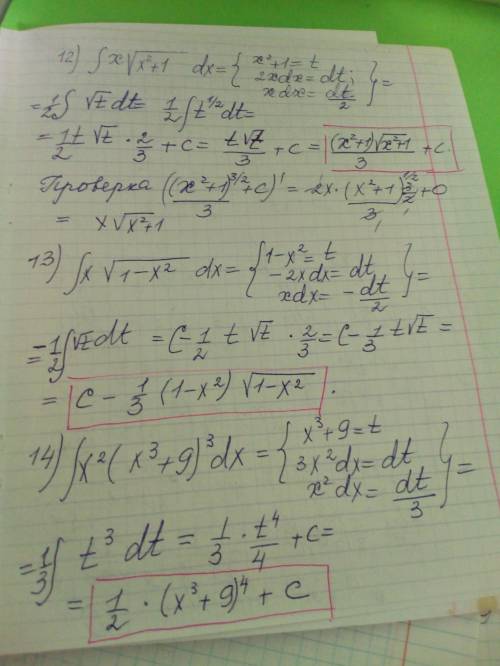 12) ∫ x√(x²+1) dx = { x²+1 = t
2xdx = dt;
xdx = dt/2 } =
= 1/2 ∫ √t dt = 1/2 ∫ t^(1/2) dt =
= 1/2 t √t · 2/3 + c = t√t/3 + c = (x²+1)√(x²+1)/3 + c.
Проверка ((x²+1)^(3/2)/3 + c)' = 2x · (x²+1)^(1/2)/3 · 3/2 + 0
= x√(x²+1)
13) ∫ x √(1-x²) dx = { 1-x² = t
-2xdx = dt
xdx = -dt/2 } =
= -1/2 ∫ √t dt = C - 1/2 t √t · 2/3 = C - 1/3 t√t =
= C - 1/3 (1-x²) √(1-x²) .
14) ∫ x² (x³+9)³ dx = { x³+9 = t
3x²dx = dt
x²dx = dt/3 } =
= 1/3 ∫ t³ dt = 1/3 · t⁴/4 + c =
= 1/2 · (x³+9)⁴ + C